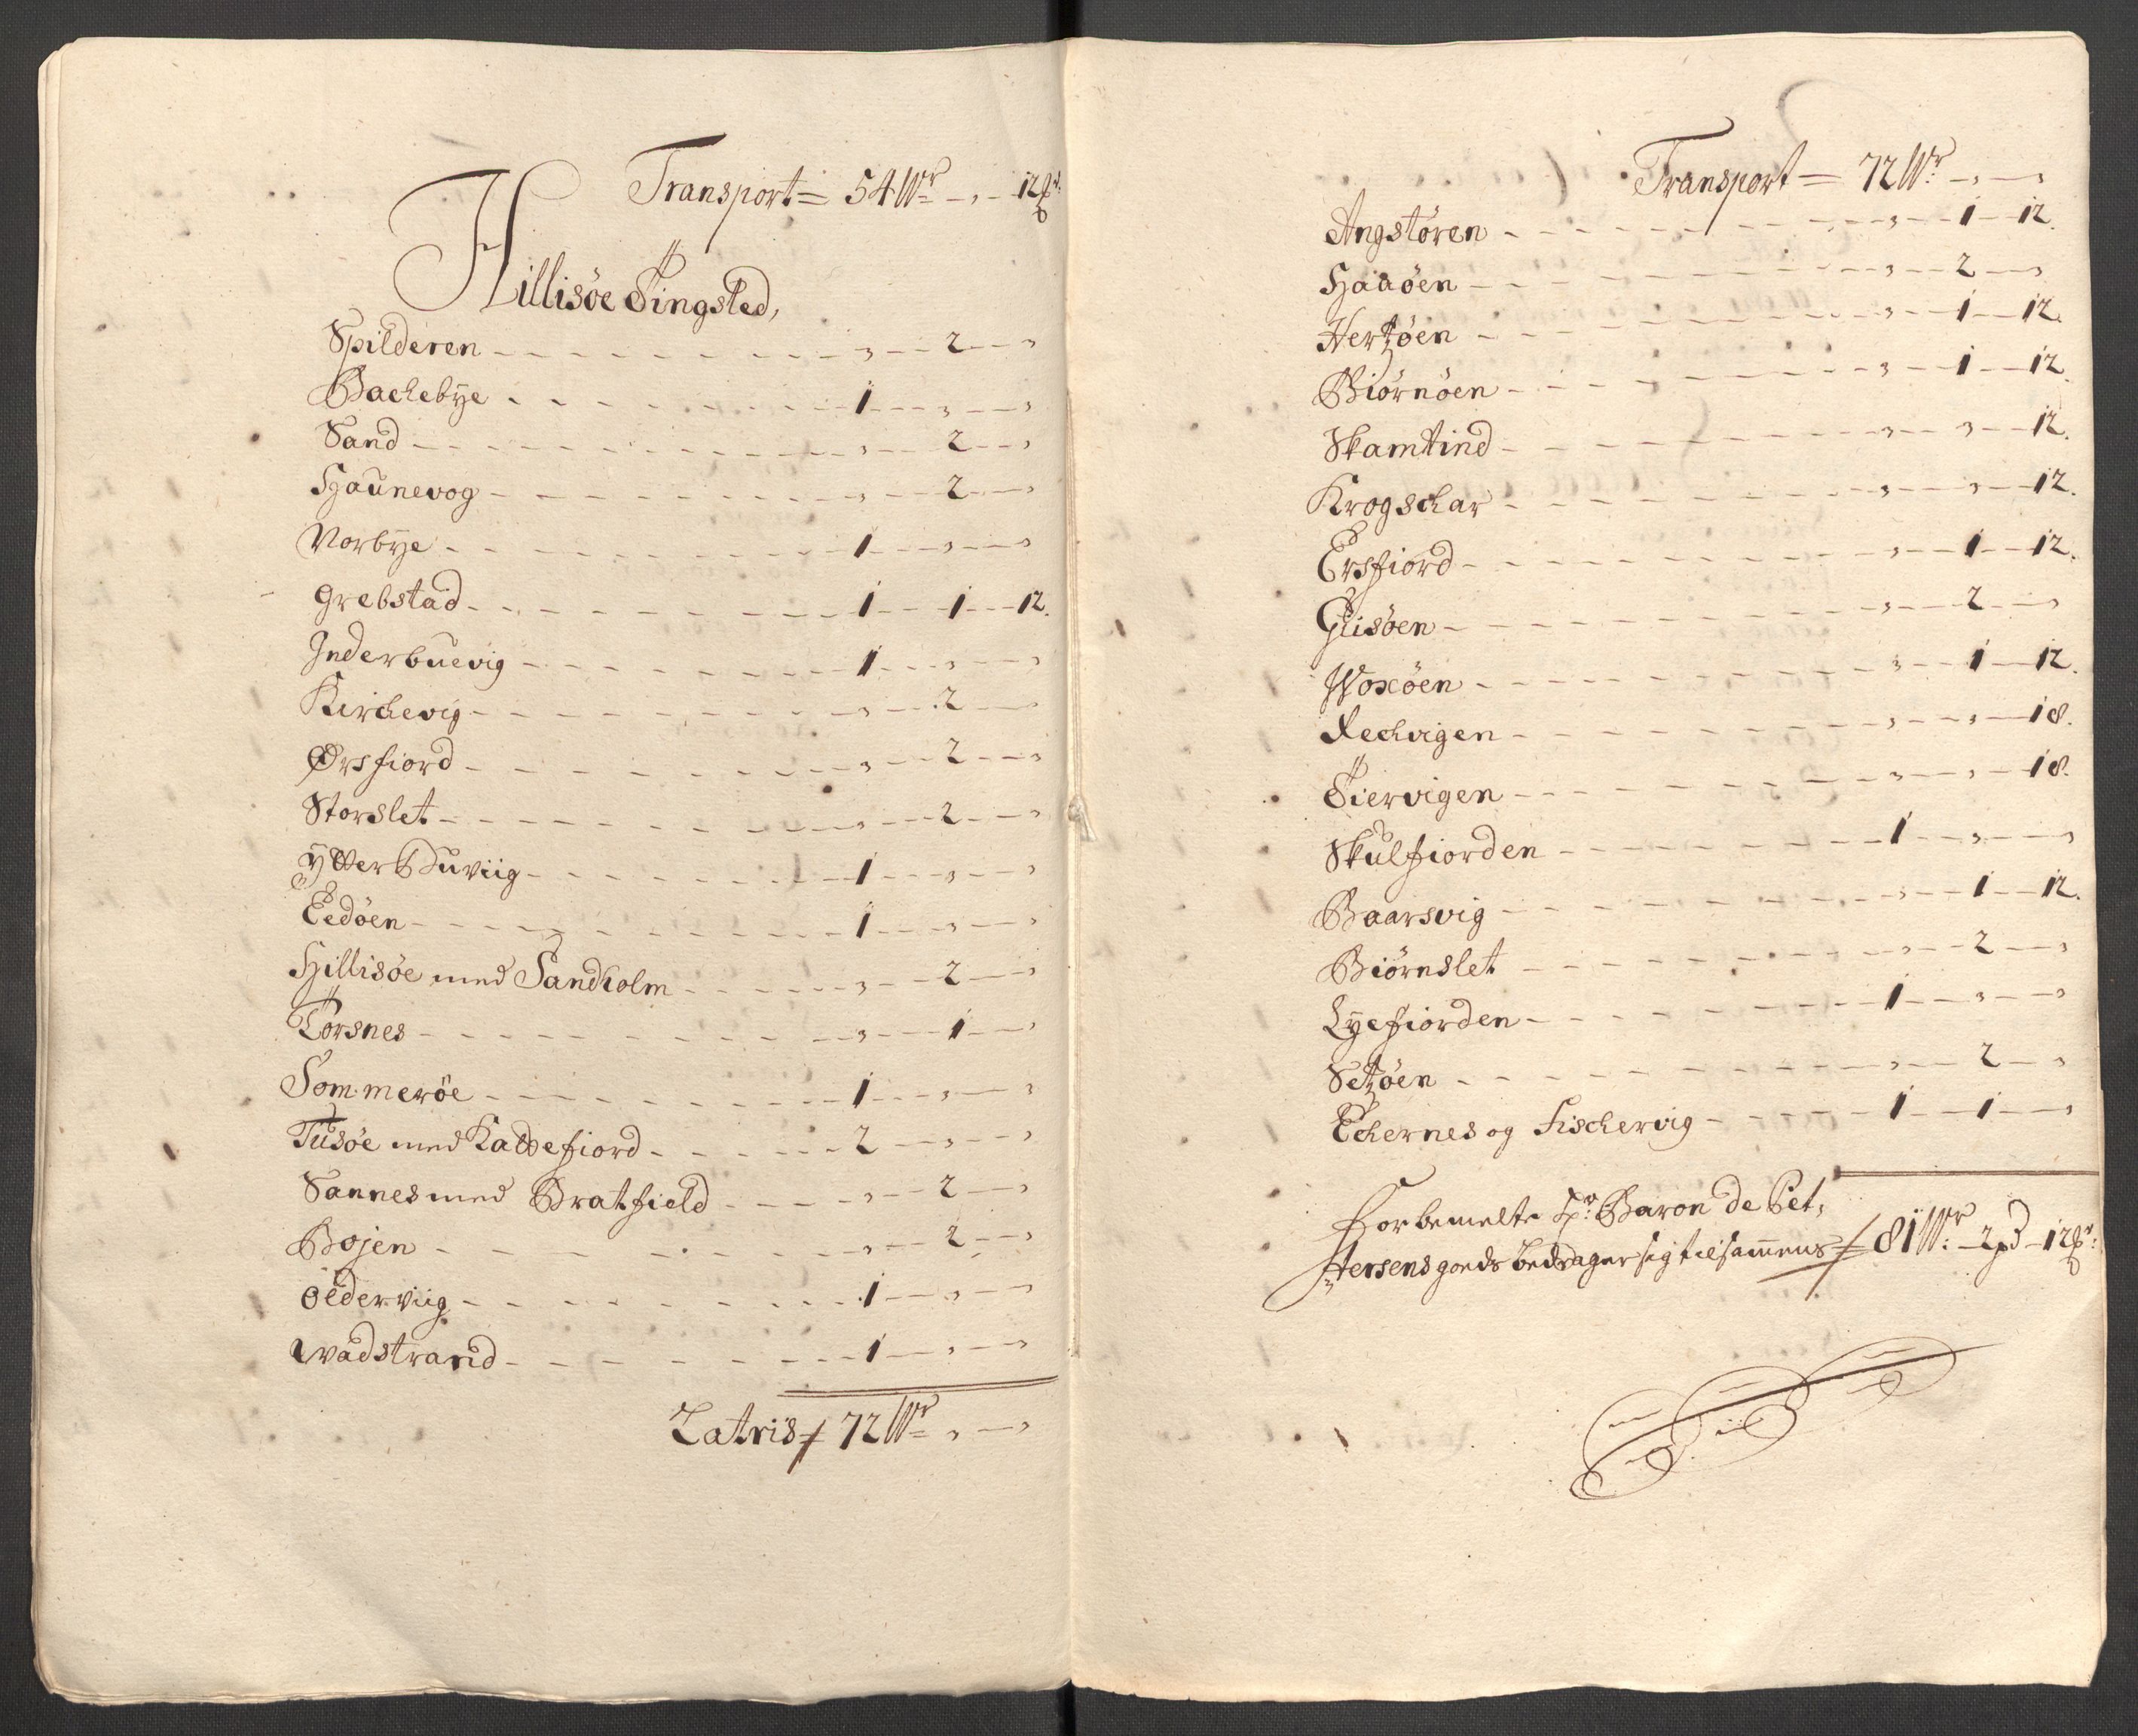 Transport = 54 Wr - , - 12 ℔r:
Hillisöe Tingsted,
Spilderen - - - , - - 2 - - ,
Bachebÿe - - - 1 - - , - - ,
Sand - - - , - - 2 - - ,
Haunevog - - - , - - 2 - - ,
Vorbÿe - - - 1 - - , - - ,
Grebstad - - - 1 - - 1 - - 12.
Inderbuevig - - - 1 - - , - - ,
Kirchevig - - - , - - 2 - - ,
Ørsfiord - - - , - - 2 - - ,
Storslet - - - , - - 2 - - ,
Ytter Buviig - - - 1 - - , - - ,
Eedöen - - - 1 - - , - - ,
Hillisöe med Sandholm - - - , - - 2 - - ,
Törsnes - - - , - - 1 - - ,
Sommeröe - - - 1 - - , - - ,
Tüsöe med Kaldefiord - - - 2 - - , - - ,
Sannes med Bratfield - - - , - - 2 - - ,
Bojen - - - , - - 2 - - ,
Olderviig - - - 1 - - , - - ,
Wadstrand - - - 1 - - , - - ,
Latris 72 Wr = , - - ,
Transport = 72 Wr: - , - - ,
Angstören - - - , - - 1 - - 12.
Haaöen - - - , - - 2 - - ,
Hertzöen - - - , - - 1 - - 12.
Biörnöen - - - , - - 1 - - 12.
Skamtind - - - , - - , - - 12.
Krogschar - - - , - - , - - 12.
Ersfiord - - - , - - 1 - - 12.
Giisöen - - - , - - 2 - - ,
Woxöen - - - , - - 1 - - 12.
Rechvigen - - - , - - , - - 18.
Tiervigen - - - , - - , - - 18.
Skulfiorden - - - 1 - - , - - ,
Baarsvig - - - , - - 1 - - 12.
Biörnslet - - - , - - 2 - - ,
Lÿefiorden - - - 1 - - , - - ,
Setzöen - - - , - - 2 - - ,
Echernes og Fischervig - - - 1 - - 1 - - ,
Forbemelte Hr: Baron de Pet,
tersens goeds bedrager sig tilsammens 81 Wr: - 2 pd - 12 ℔r: